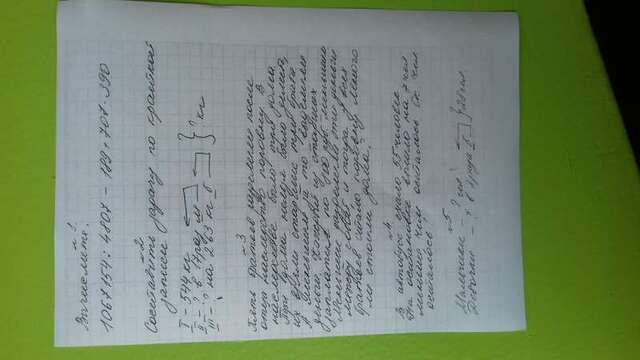 №1.
Вычислите:
1067154 : 4807 - 189 + 707 · 390
№2
Составить задачу по краткой
записи
I - 544 кг
II - ? в 17 раз м
III - ? на 263 кг б
? кг
№3
Пять братьев разделили после
отца наследство поровну. В
наследстве было три дома
три дома нельзя было делить,
их взяли старшие три брата
А меньшим за то выделили
деньги. Каждый из старших
заплатил по 800 руб. меньшим
Меньшие разделили эти деньги
между собой и тогда у всех
братьев стало поровну. Много
ли стоили дома.
№4
В автобусе ехало 55 человек
На остановке вышло на 7 чел
меньше, чем осталось. Ск чел
осталось?
№5
Мальчики - ? чел
Девочки - ? в 3 раза б
28 чел